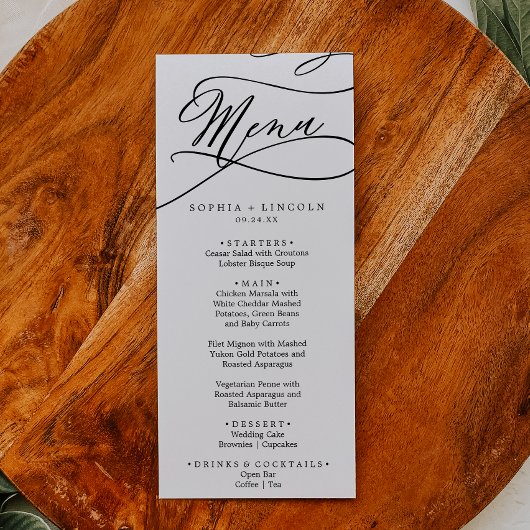 Menu
SOPHIA + LINCOLN
09.24.XX
• STARTERS •
Ceasar Salad with Croutons
Lobster Bisque Soup
• MAIN •
Chicken Marsala with
White Cheddar Mashed
Potatoes, Green Beans
and Baby Carrots
Filet Mignon with Mashed
Yukon Gold Potatoes and
Roasted Asparagus
Vegetarian Penne with
Roasted Asparagus and
Balsamic Butter
• DESSERT •
Wedding Cake
Brownies | Cupcakes
• DRINKS & COCKTAILS •
Open Bar
Coffee | Tea